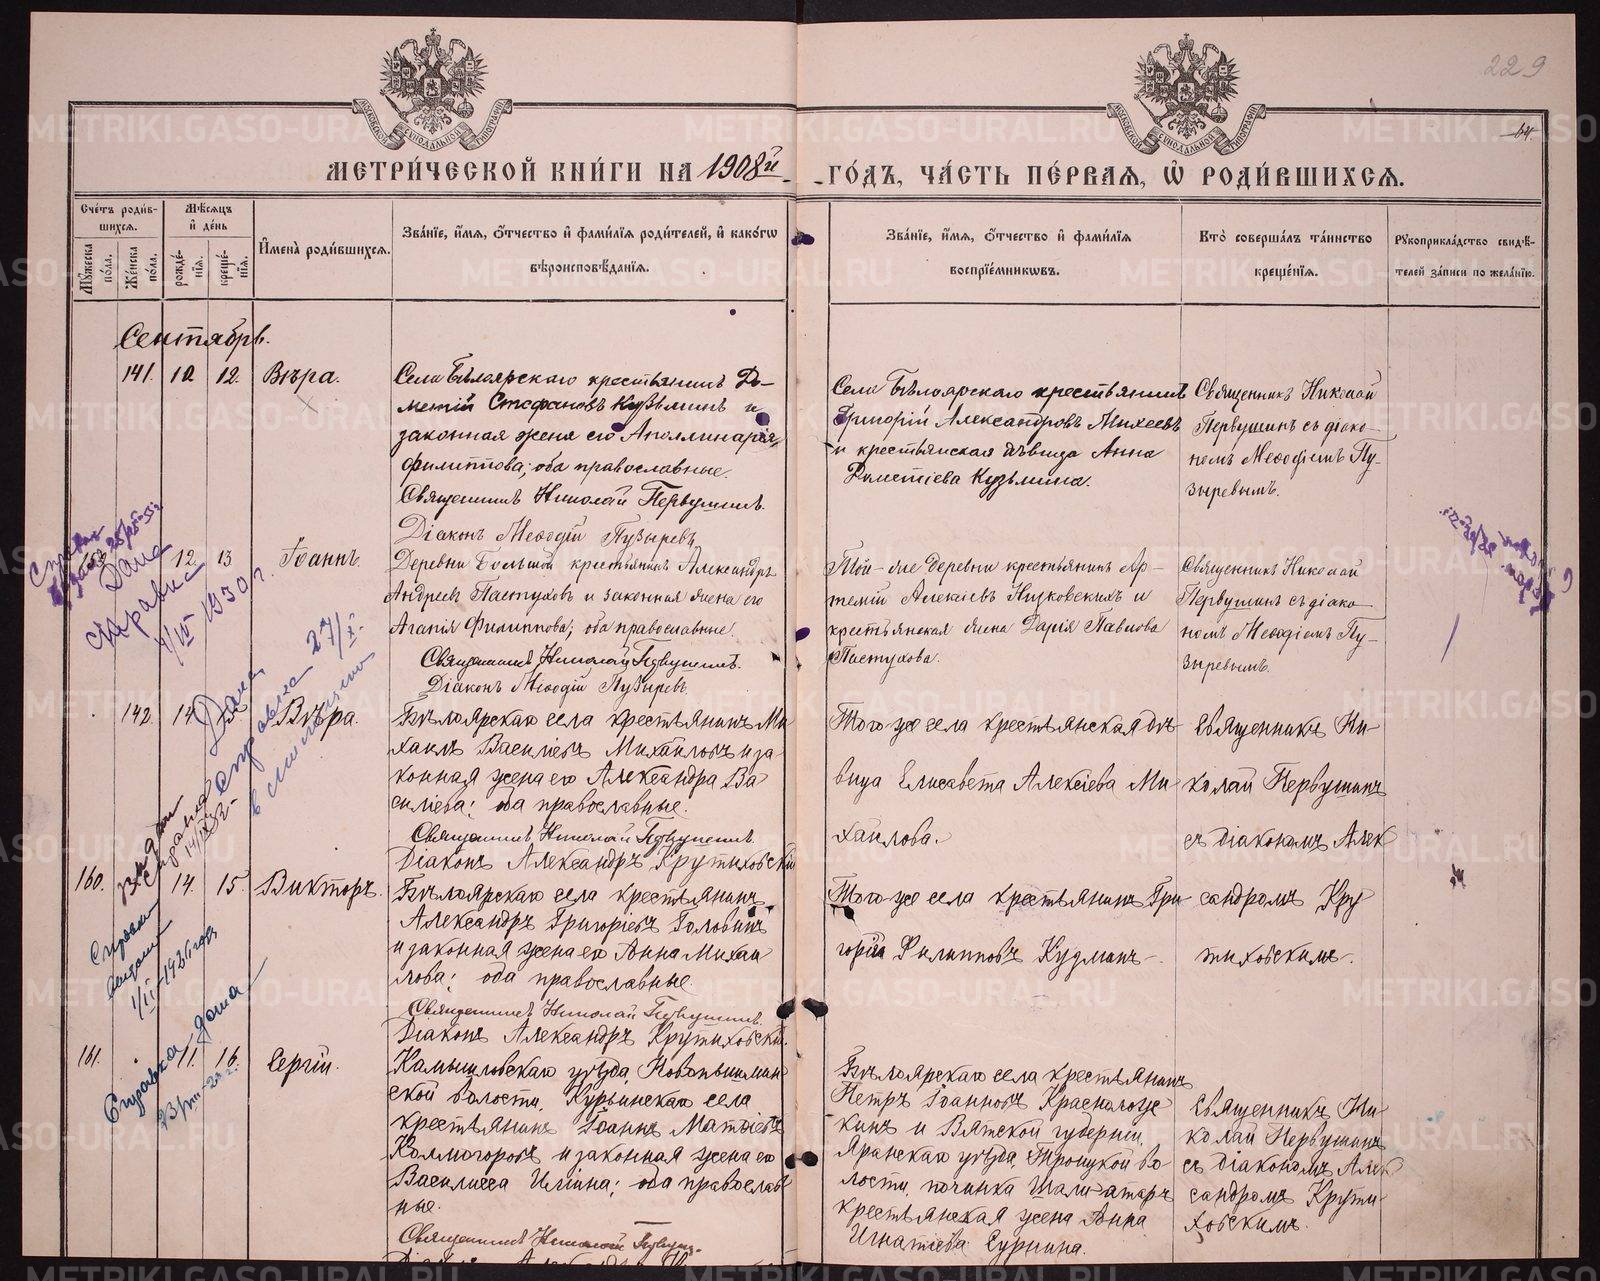 229
64.
МОСКОВСКОЙ СѴНОДАЛЬНОЙ ТИПОГРАФІИ
МОСКОВСКОЙ СѴНОДАЛЬНОЙ ТИПОГРАФІИ
МЕТРИ́ЧЕСКОЙ КНИ́ГИ НА 1908й ГО́ДЪ, ЧА́СТЬ ПЕ́РВАѦ, Ѡ҆ РОДИ́ВШИХСѦ.
Сче́тъ роди́в-
шихсѧ.
Мꙋ́жеска по́ла.
Же́нска по́ла.
Мѣ́сѧцъ
и҆ де́нь
рожде́-
нїѧ.
креще́-
нїѧ.
И҆мена̀ роди́вшихсѧ.
Зва́нїе, и҆́мѧ, ѻ҆́тчество и҆ фами́лїѧ роди́телей, и҆ како́гѡ
вѣроисповѣ́данїѧ.
Зва́нїе, и҆́мѧ, ѻ҆́тчество и҆ фами́лїѧ
воспрїе́мникѡвъ.
Кто̀ соверша́лъ та́инство
креще́нїѧ.
Рꙋкоприкла́дство свидѣ́-
телей за́писи по жела́нїю.
Сентябрь.
141. 10 12. Вѣра.
Села Бѣлоярскаго крестьянинъ До-
метій Стефановъ Кузьминъ и
законная жена его Аполлинарія
Филиппова; оба православные.
Священникъ Николай Первушинъ.
Діаконъ Меѳодій Пузыревъ
Села Бѣлоярскаго крестьянинъ
Григорій Александровъ Михеевъ
и крестьянская дѣвица Анна
Дометіева Кузьмина.
Священникъ Николай
Первушинъ съ діако-
номъ Меѳодіемъ Пу-
зыревымъ.
12 13 Іоаннъ.
Деревни Большой крестьянинъ Александръ
Андреевъ Пастуховъ и законная жена его
Агапія Филиппова; оба православные.
Священникъ Николай Первушинъ.
Діаконъ Меѳодій Пузыревъ
Той-же деревни крестьянинъ Ар-
темій Алексіевъ Низковскихъ и
крестьянская жена Дарія Павлова
Пастухова.
Священникъ Николай
Первушинъ съ діако-
номъ Меѳодіемъ Пу-
зыревымъ.
142. 14 Вѣра.
Бѣлоярскаго села крестьянинъ Ми
хаилъ Васильевъ Михайловъ и за
конная жена его Александра Ва
сильева; оба православные.
Священникъ Николай Первушинъ.
Діаконъ Александръ Крутиховскій
Того же села крестьянская дѣ-
вица Елисавета Алексіева Ми
хаилова.
Священникъ Ни-
колай Первушинъ
съ діакономъ Алек
сандромъ Кру
тиховскимъ.
160. 14. 15. Викторъ.
Бѣлоярскаго села крестьянинъ
Александръ Григорьевъ Головинъ
и законная жена его Анна Михаи
лова; оба православные.
Священникъ Николай Первушинъ.
Діаконъ Александръ Крутиховскій.
Того же села крестьянинъ Гри-
горій Филипповъ Кудминъ.
161. 11. 16. Сергій.
Камышловскаго уѣзда, Новопышмин
ской волости, Курьинскаго села
крестьянинъ Іоаннъ Матѳіевъ
Колмогоровъ и законная жена его
Василисса Ильина; оба православ
ные.
Священникъ Николай Первушинъ.
Бѣлоярскаго села крестьянинъ
Петръ Іоанновъ Красноложе
нинъ и Вятской губерніи,
Яранскаго уѣзда, Троицкой во
лости, починка Шали-атаръ
крестьянская жена Анна
Игнатіева Сурнина.
Священникъ Ни-
колай Первушинъ
съ діакономъ Алек
сандромъ Крути
ховскимъ.
Дана
справка
1/IV 1930 г.
Дана
справка 27/X-
Выдан
справка
1/II-1926 года
Справка дана
23/VIII-28 г.
METRIKI.GASO-URAL.RU